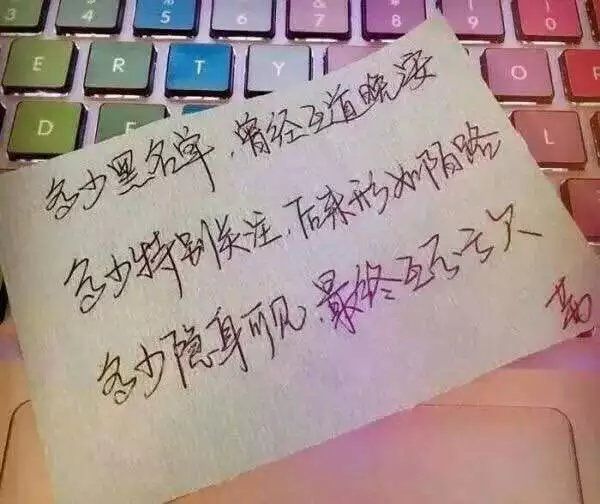 3 4 5 6 7 8 9 0
$ % & * ( )
E R T Y O
D L
多少黑名单,曾经互道晚安
多少特别关注,后来形如陌路
多少隐身可见,最终互不亏欠